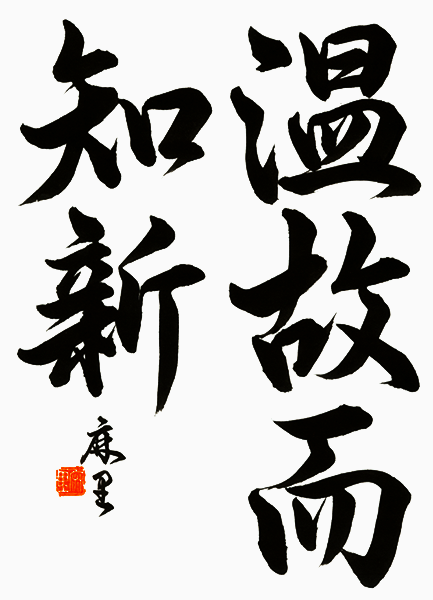 温故而
知新
麻里